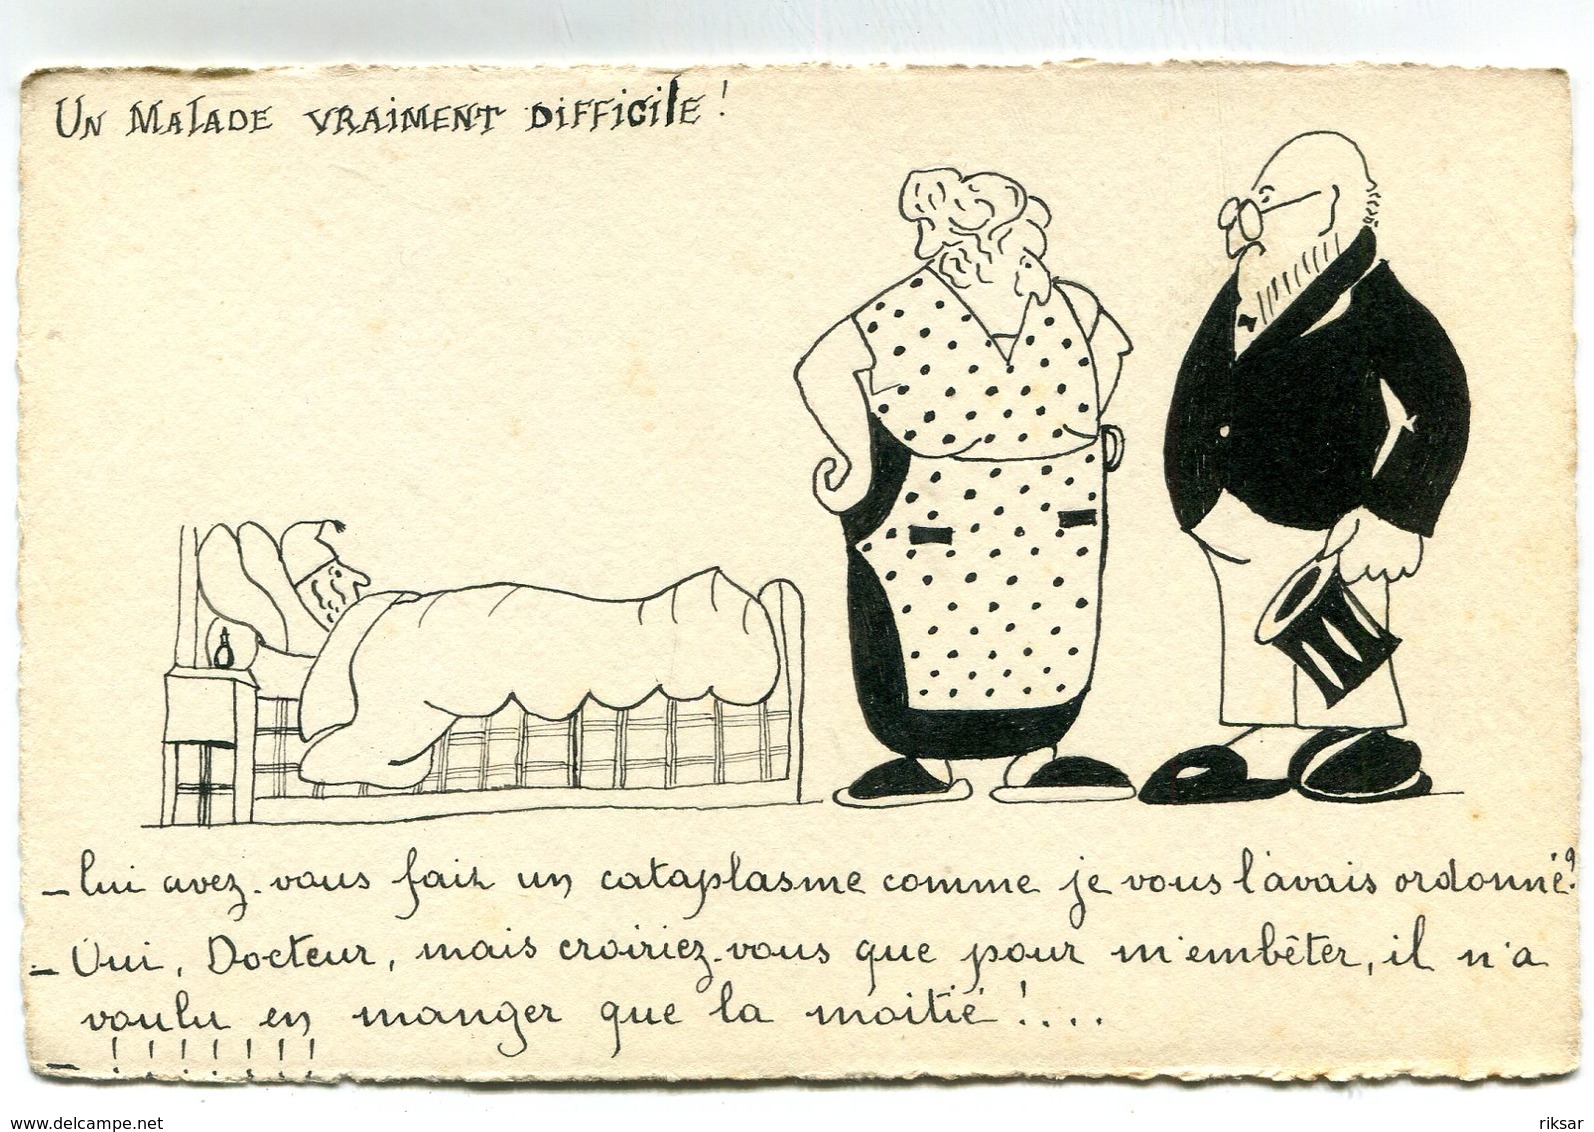 Un Malade vraiment difficile !
- lui avez-vous fait un cataplasme comme je vous l'avais ordonné ?
- Oui, Docteur, mais croiriez-vous que pour m'embêter, il n'a
voulu en manger que la moitié !....
- ! ! ! ! ! ! !
www.delcampe.net
riksar